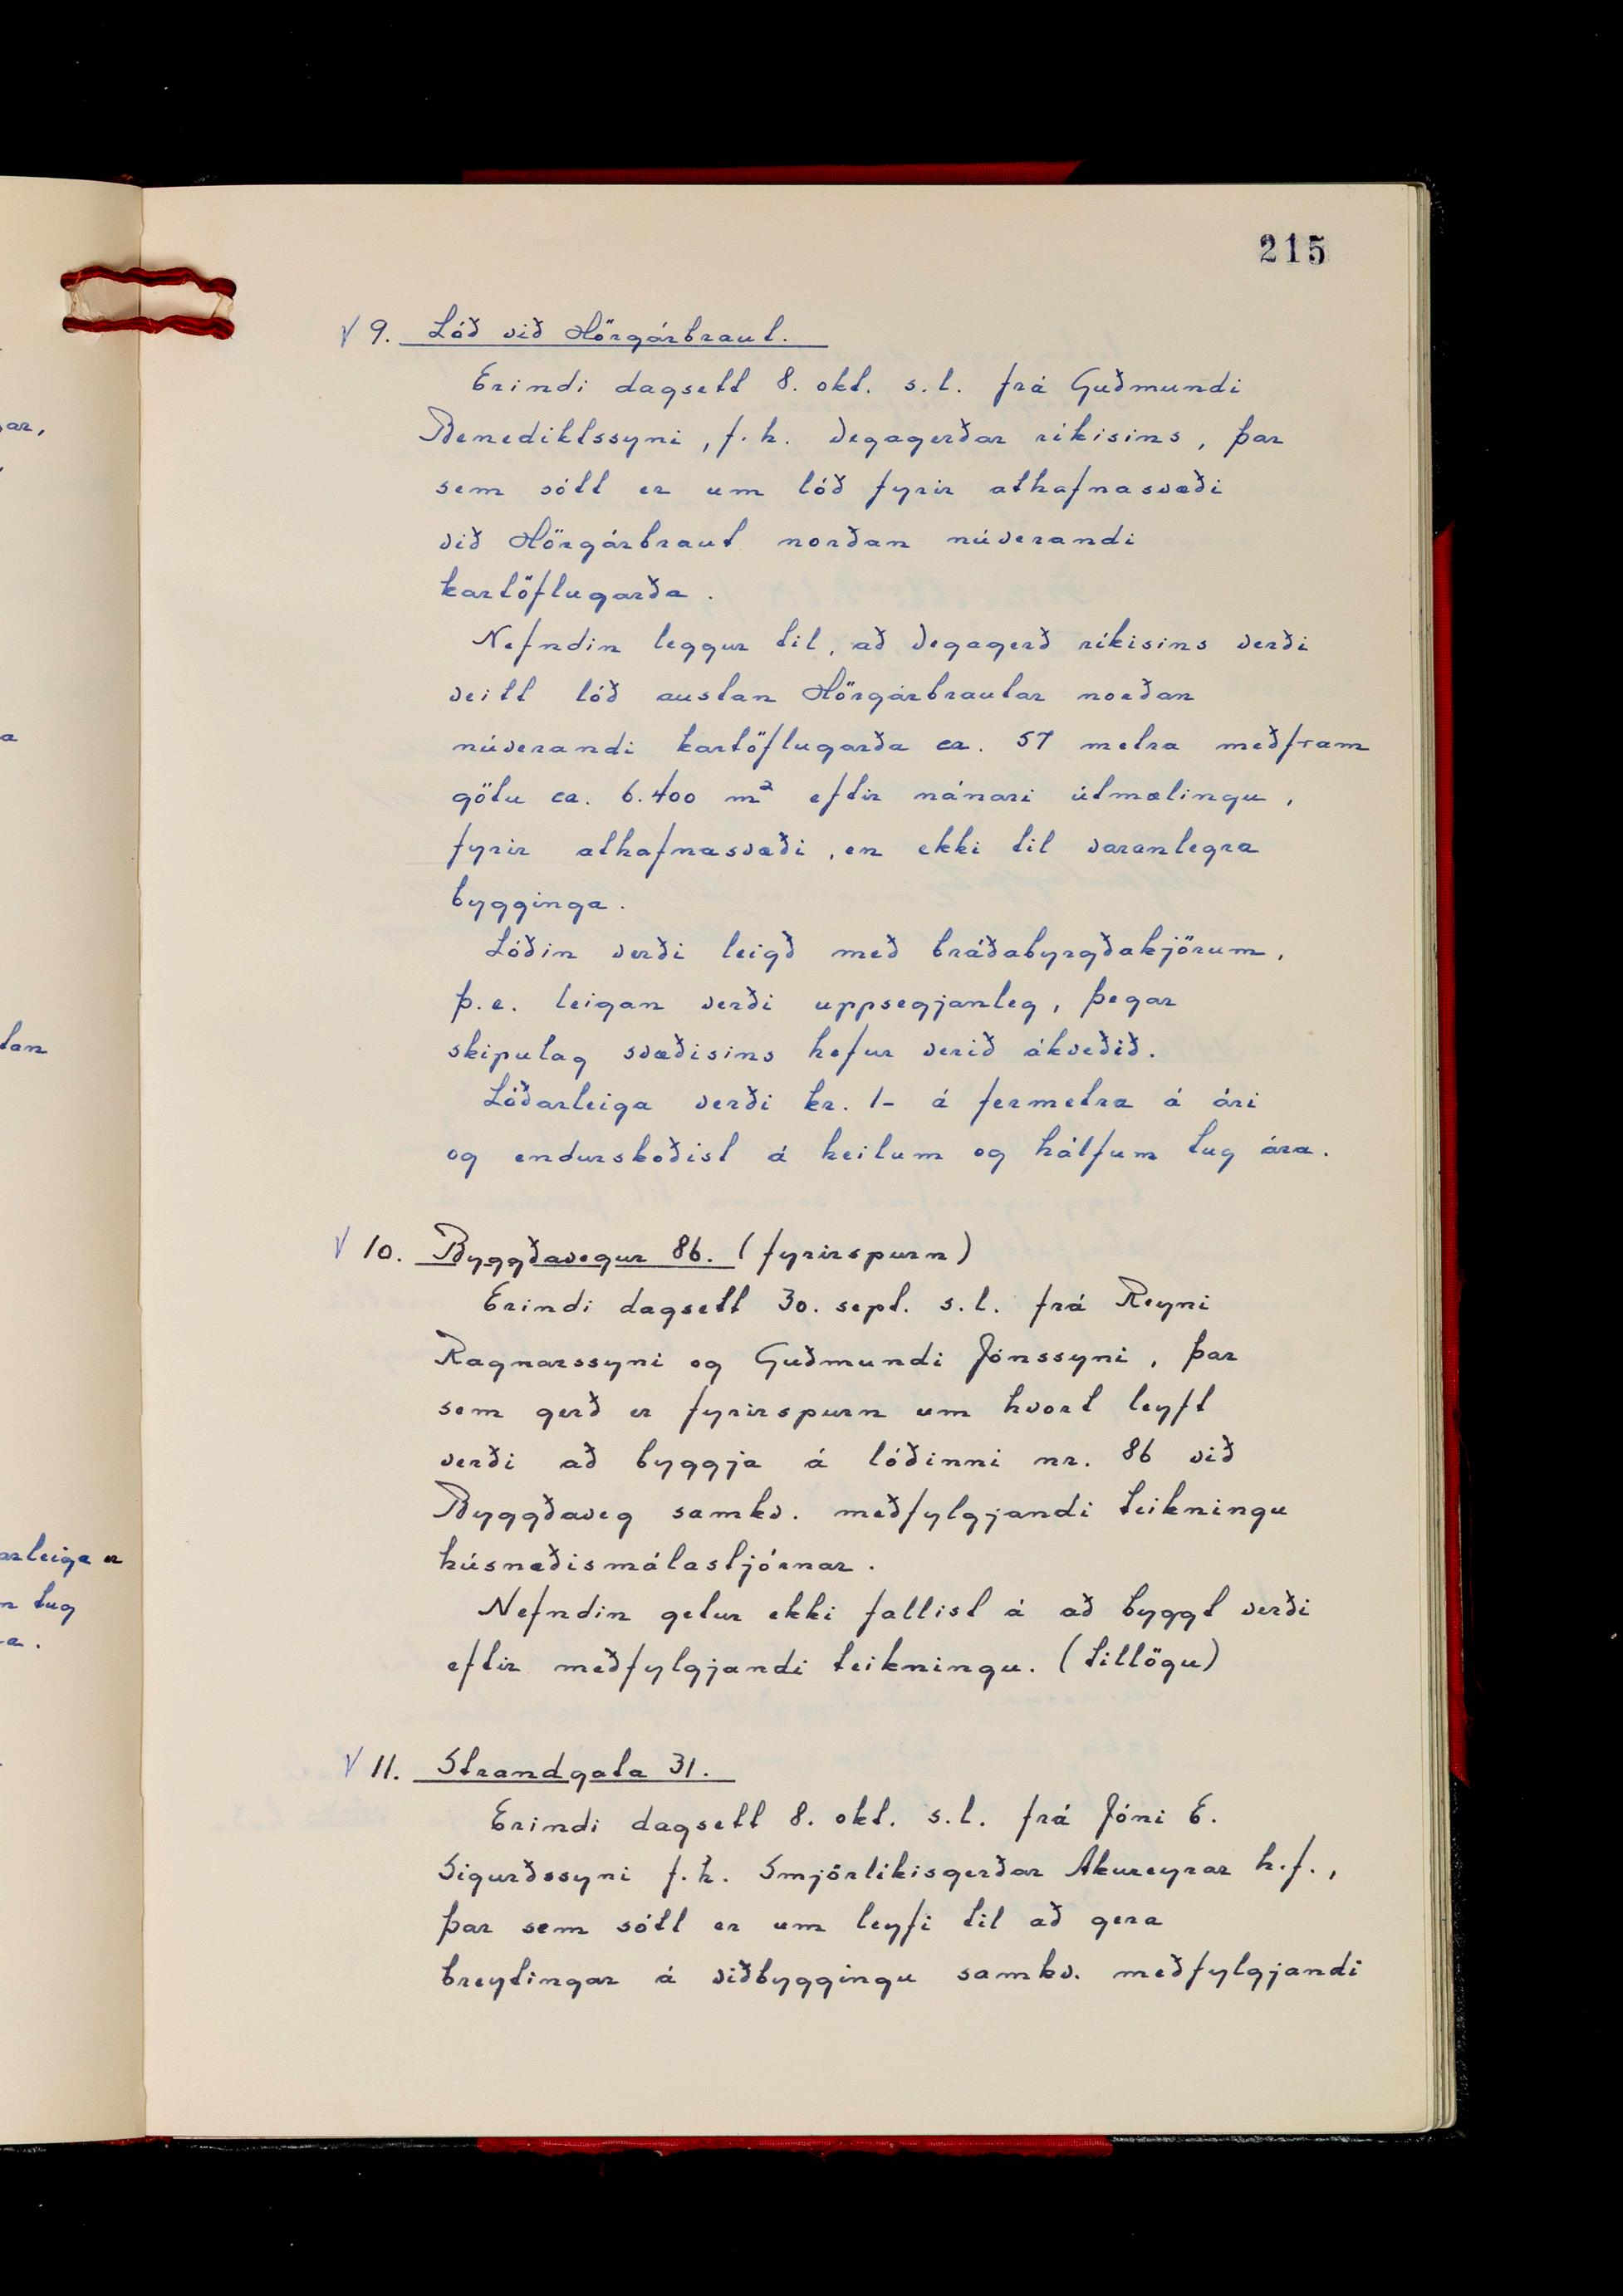 215
√ 9. Lóð við Hörgárbraut.
Erindi dagsett 8. okt. s.l. frá Guðmundi
Benediktssyni, f.h. Vegagerðar ríkisins, þar
sem sótt er um lóð fyrir athafnasvæði
við Hörgárbraut norðan núverandi
kartöflugarða.
Nefndin leggur til, að Vegagerð ríkisins verði
veitt lóð austan Hörgárbrautar norðan
núverandi kartöflugarða ca. 57 metra meðfram
götu ca. 6.400 m² eftir nánari útmælingu,
fyrir athafnasvæði, en ekki til varanlegra
bygginga.
Lóðin verði leigð með bráðabyrgðakjörum,
þ.e. leigan verði uppsegjanleg, þegar
skipulag svæðisins hefur verið ákveðið.
Lóðarleiga verði kr. 1- á fermetra á ári
og endurskoðist á heilum og hálfum tug ára.
√ 10. Byggðavegur 86. (fyrirspurn)
Erindi dagsett 30. sept. s.l. frá Reyni
Ragnarssyni og Guðmundi Jónssyni, þar
sem gerð er fyrirspurn um hvort leyft
verði að byggja á lóðinni nr. 86 við
Byggðaveg samkv. meðfylgjandi teikningu
húsnæðismálastjórnar.
Nefndin getur ekki fallist á að byggt verði
eftir meðfylgjandi teikningu. (tillögu)
√ 11. Strandgata 31.
Erindi dagsett 8. okt. s.l. frá Jóni E.
Sigurðssyni f.h. Smjörlíkisgerðar Akureyrar h.f.,
þar sem sótt er um leyfi til að gera
breytingar á viðbyggingu samkv. meðfylgjandi